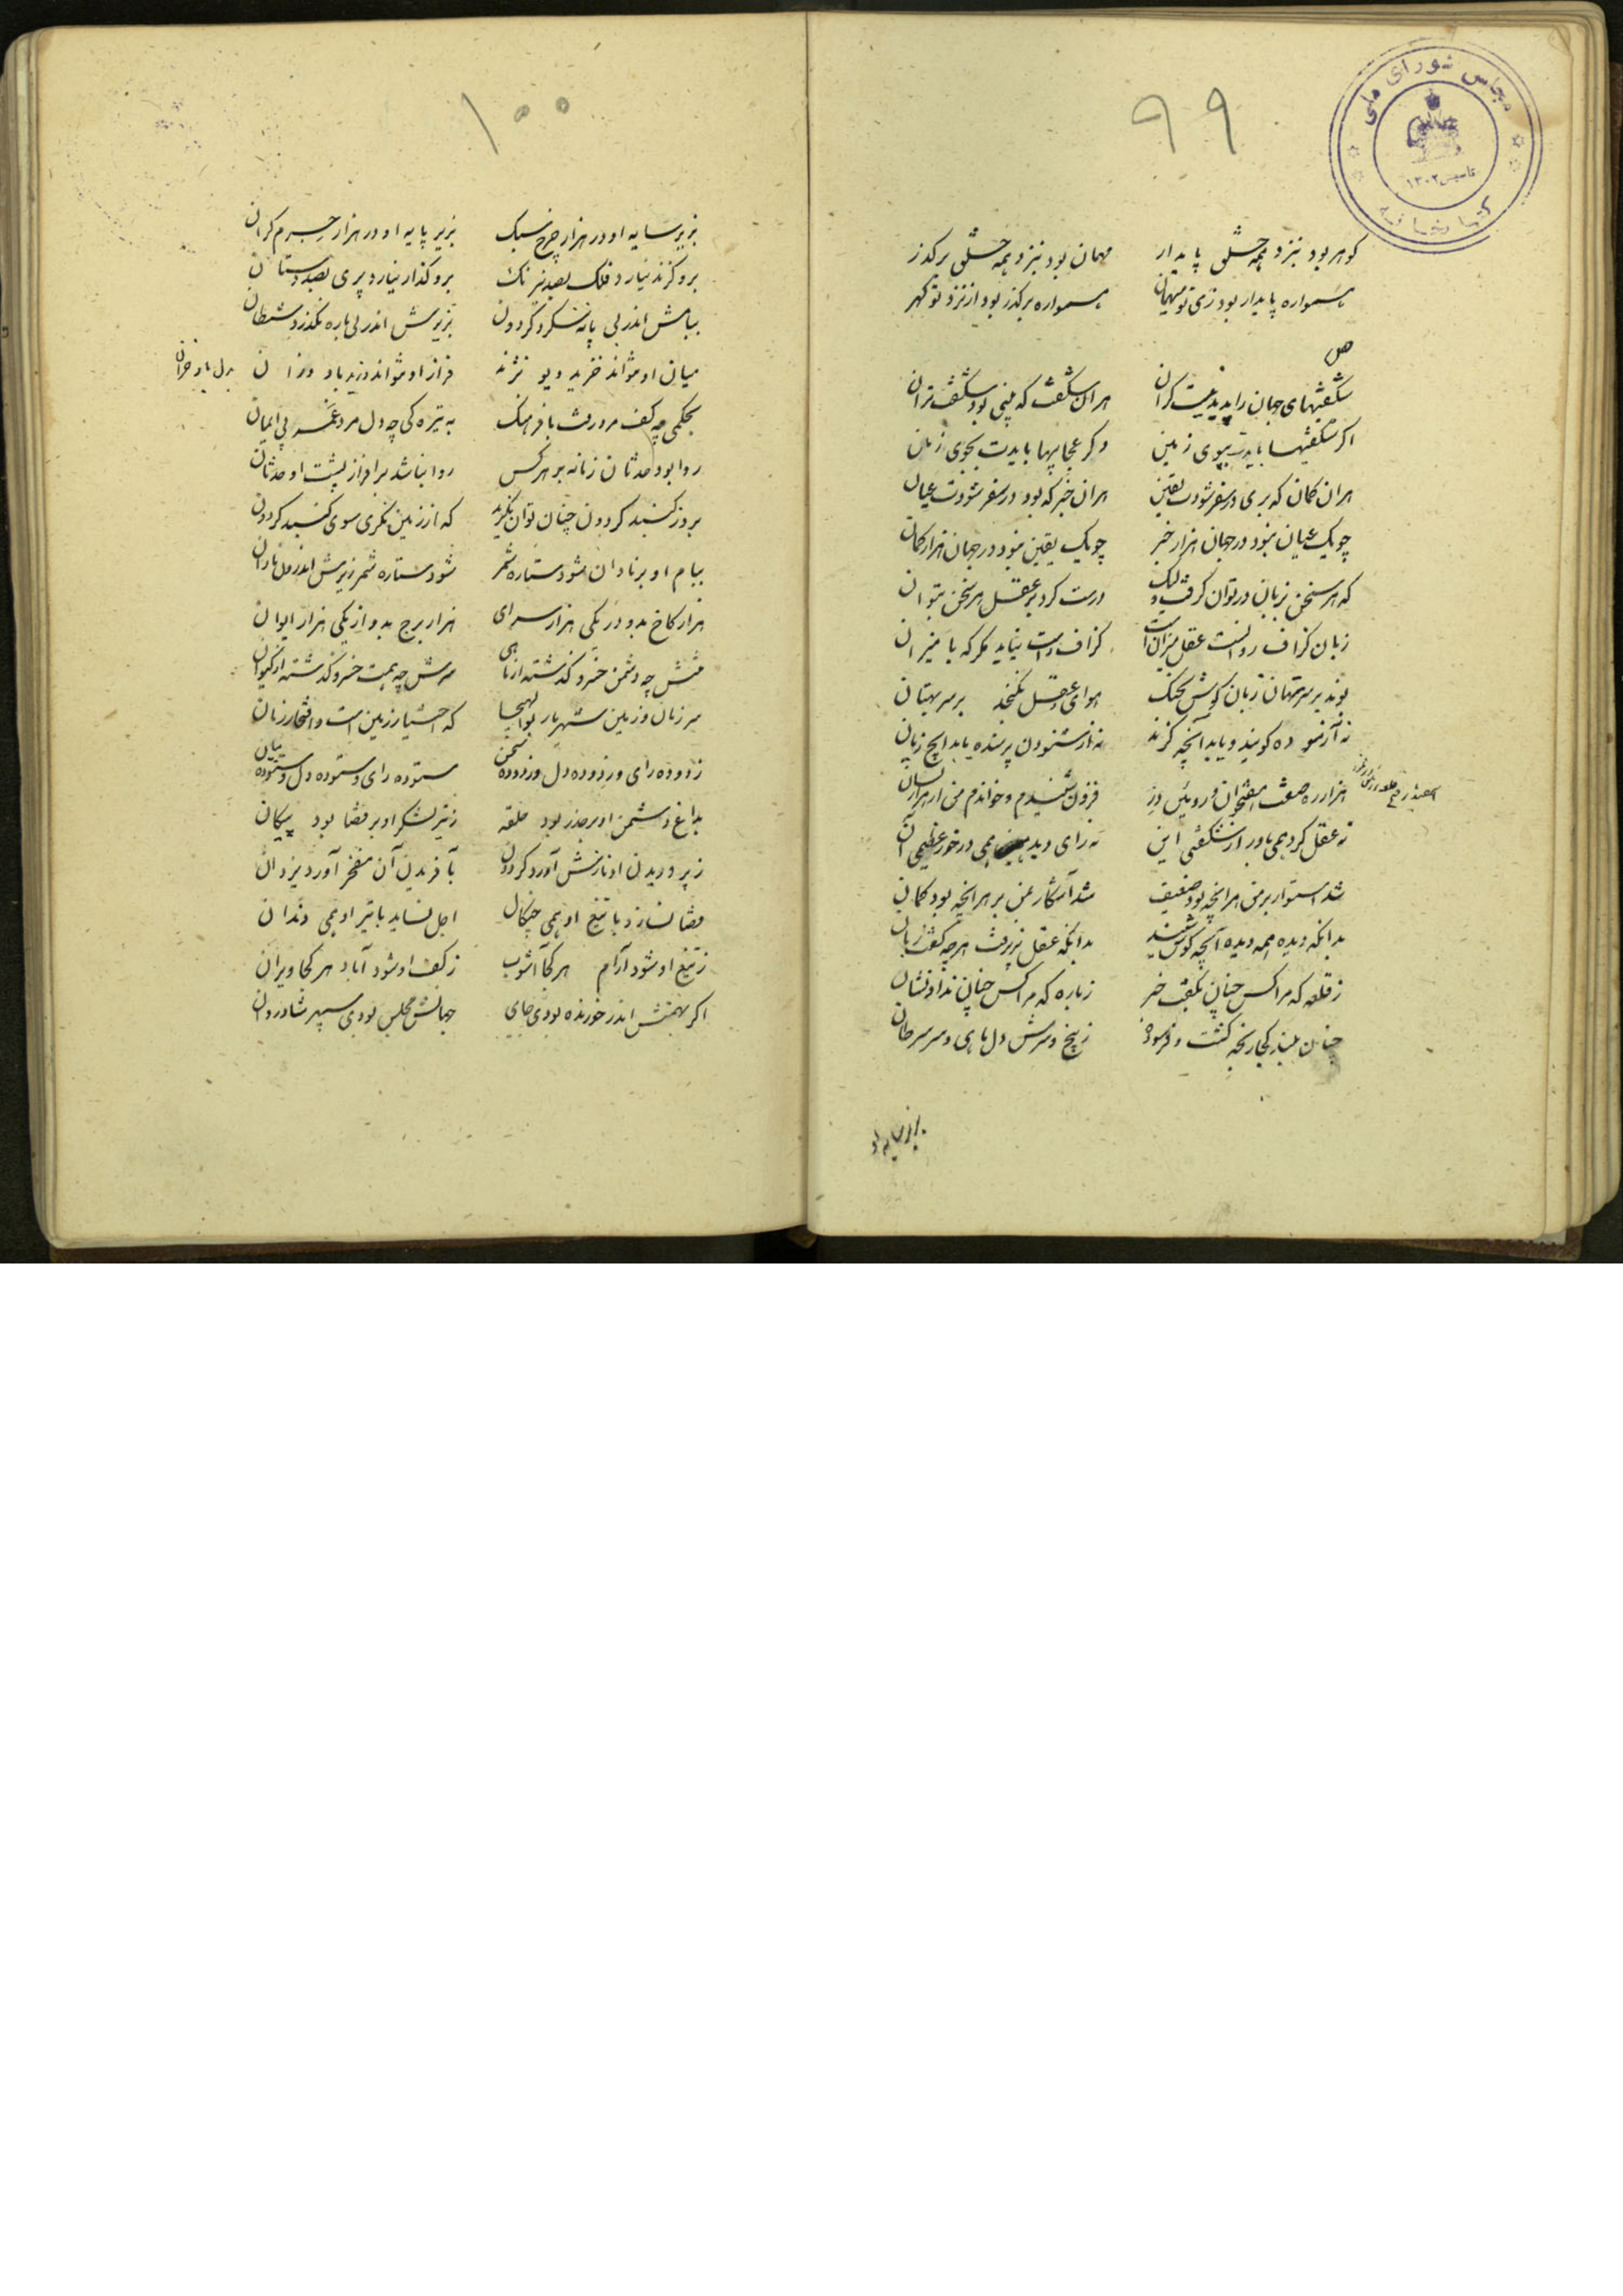 ۹۹
مجلس شورای ملی
تاسیس ۱۳۰۲
کتابخانه
کوهر بود بنزد همه خلق پایدار    مهمان بود بنزد همه خلق برکذر
همواره پایدار بود زی تو میهمان    همواره برکذر بود از نزد تو کهر
ص
شکفتیهای جهان را پدید نیست کران    هران شکفت که بینی بود شکفت تران
اکر شکفتیها بایدت بپوی زمین    وکر عجایبها بایدت بجوی زمان
هران کمان که بری در سفر شودت یقین    هران خبر که بود در سفر شودت عیان
چو یک عیان نبود در جهان هزار خبر    چو یک یقین نبود در جهان هزار کمان
که هر سخن بزبان در توان کرفت ولیک    درست کرد بر عقل هر سخن نتوان
زبان کزاف رواست عقل میزانست    کزاف راست نیاید مکر که با میزان
بوند بر سر بهتان زبان و کوش    هوای عقل نکنجد بر سر بهتان
نه آزمو ده کویند و یابد آنچه کزند    نه از شنودن پرسنده یابد ایچ زیان
هزار ره صفت هفتخوان و رویین دز    فزون شنیدم و خواندم من از هزار افسان
نه عقل کرد همی باور از شکفتی این    نه رای دید همی در خور عظیمی آن
شد استوار بر من هر انچه بود ضعیف    شد آشکار بمن بر هر انچه بود کمان
بدانکه دیده همه دیده آنچه کوش شنید    بدانکه عقل پزیرفت هر چه کفت زبان
ز قلعه که مرا کس چنان نکفت خبر    ز باره که مرا کس چنان نداد نشان
چنان بلند کجا رنجه کشت و فرسوده    ز بیخ و سرش دل ماهی و سر سرطان
بزیر سایه او
۱۰۰
بزیر سایه او در هزار چرخ سبک    بزیر پایه او در هزار جرم کران
برو کزند نیارد فلک بصد نیرنک    برو کذار نیارد پری بصد دستان
ببامش اندر بی پانه نسکرد کردون    بزیرش اندر بی باره نکذرد شیطان
میان او نتواند خزید دیو نژند    فراز او نتواند وزید باد وزان
بدل باد خزان
بحکمی چه کف مرد رفت با فرهنک    به تیره کی چه دل مرد غمر بی ایمان
روا بود حدثان زمانه بر هر کس    روا نباشد بر افراز پشت او حدثان
بروز کنبد کردون چنان توان نکرید    که از زمین نکری سوی کنبد کردون
ببام او بر نادان شود ستاره شمر    شود ستاره شمر زیرش اندرون نادان
هزار کاخ بدو در یکی هزار سرای    هزار برج بدو از یکی هزار ایوان
منش چه دشمن خسرو کذشته از ماهی    سرش چه همت خسرو کذشته از کیوان
سر زمان و زمین شهریار بوالهیجا    که اختیار زمین است و افتخار زمان
زدوده رای و زدوده دل و زدوده سخن    ستوده رای و ستوده دل و ستوده بیان
بداغ دشمن او بر حذر بود حلقه    ز تیر لشکر او بر قضا بود پیکان
ز پروریدن او نازش آورد کردون    بآفریدن آن مفخر آورد یزدان
قضا نسازد با تیغ او همی چنکال    اجل نساید با تیر او همی دندان
ز تیغ او شود آرام هر کجا آشوب    ز کف او شود آباد هر کجا ویران
اکر بهمتش اندر خورنده بودی جای    جهانش مجلس بودی سپهر شادروان